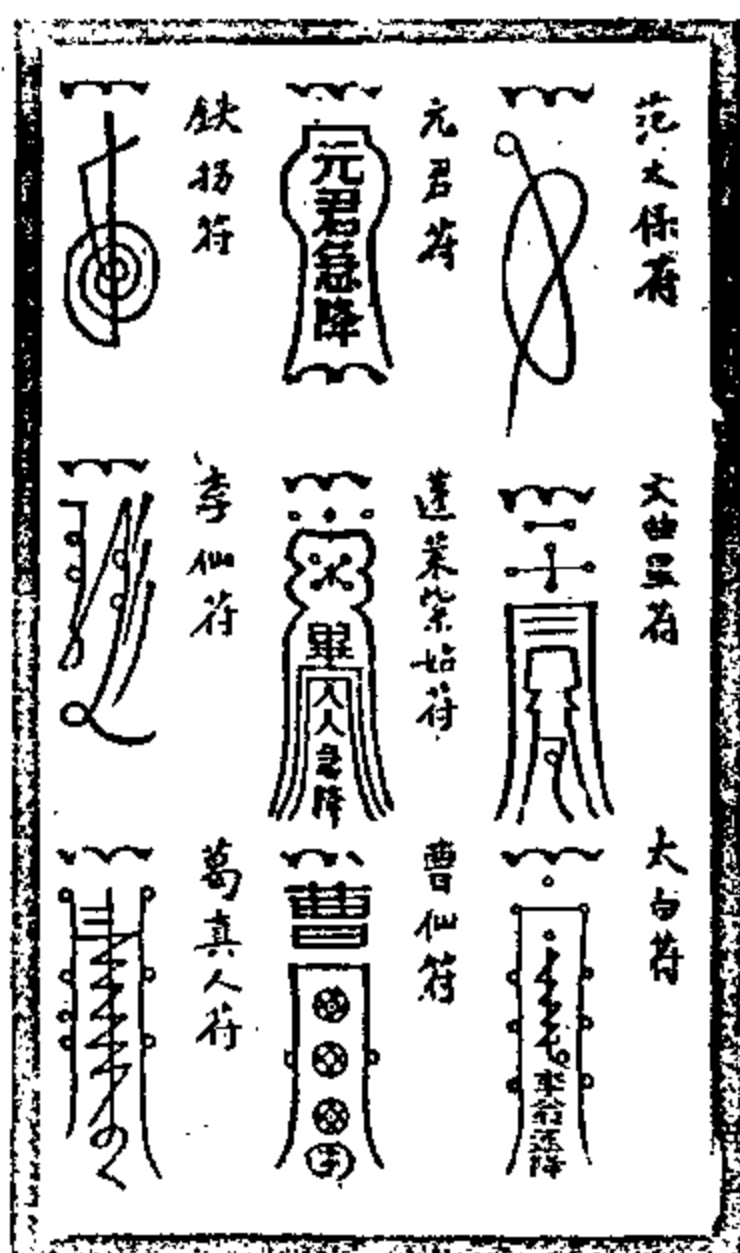 范太保符
文曲星符
太白符
元君符
元君急降
蓬萊紫姑符
人人急降
曹仙符
鉄拐符
李仙符
葛真人符